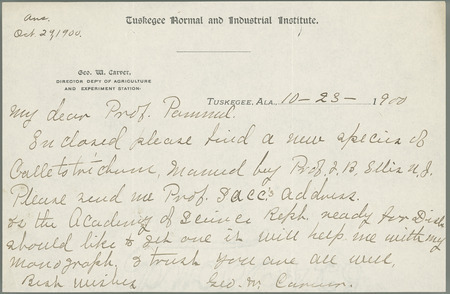 Ans.
Oct. 27, 1900.
Tuskegee Normal and Industrial Institute.
Geo. W. Carver,
DIRECTOR DEPT OF AGRICULTURE
AND EXPERIMENT STATION.
TUSKEGEE, ALA. 10-23- 1900
My dear Prof. Pammel.
Enclosed please find a new species of
Colletotrichum, Named by Prof. J. B. Ellis N. J.
Please send me Prof. address.
Is the Academy of Science Rept. ready for Dist.
should like to get one it will help me with my
monograph, I trust you are all well,
Best wishes Geo. W. Carver.